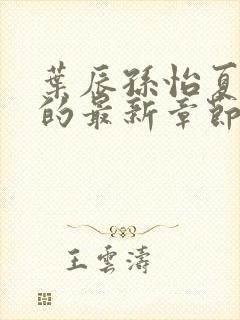 葉辰孫怡夏
的最新章節
王雲濤